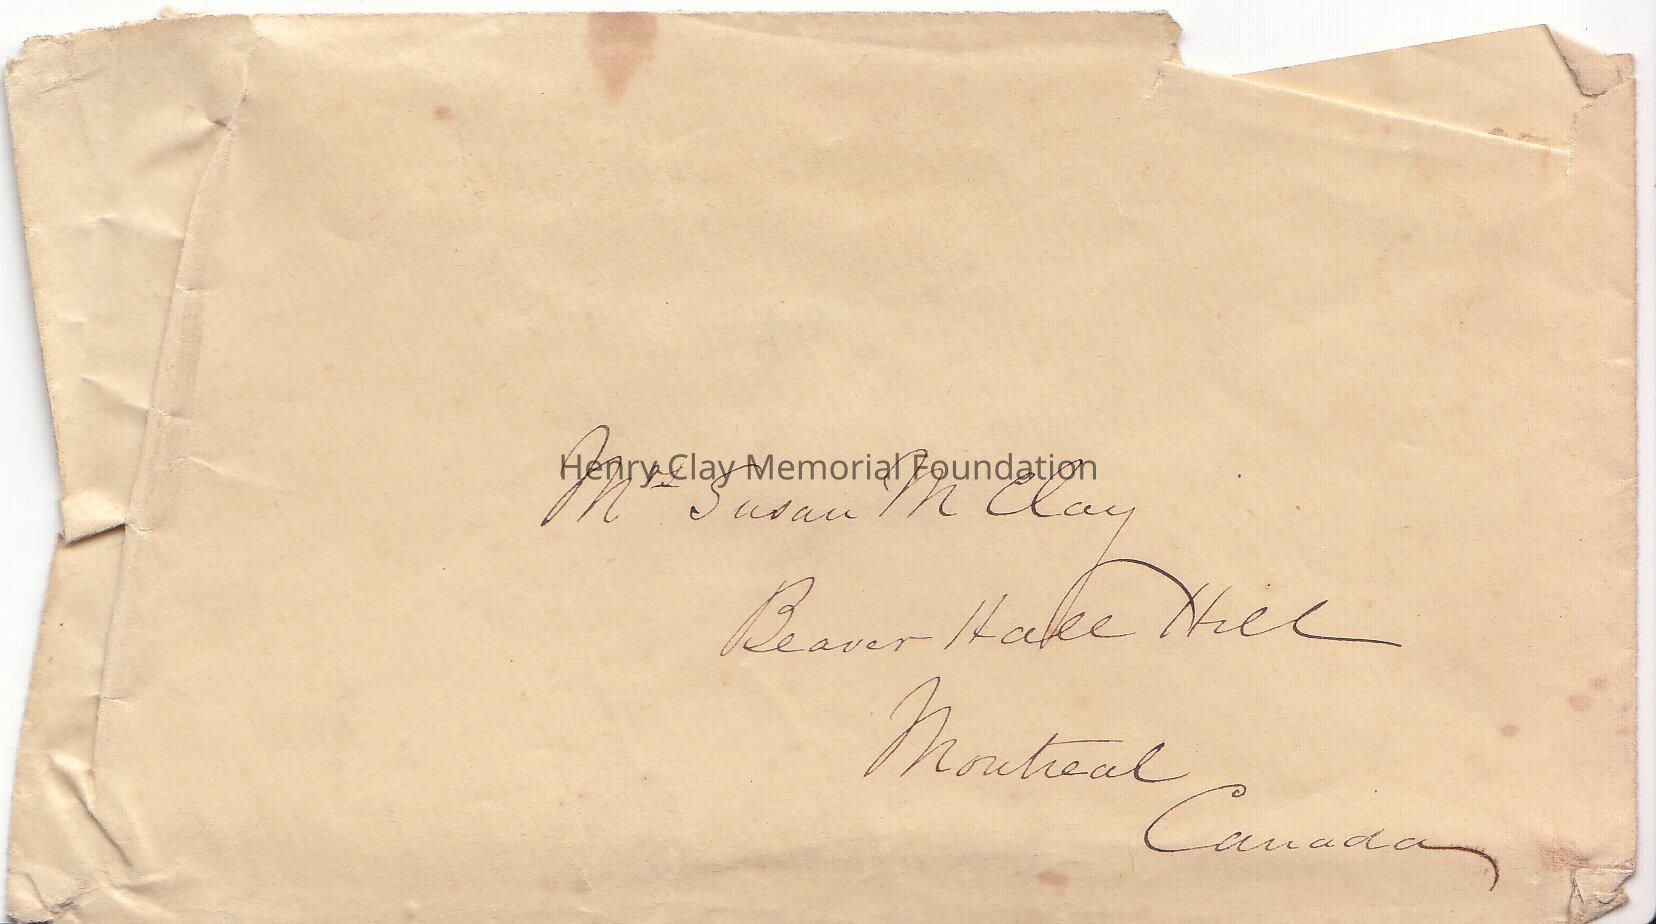 Henry Clay Memorial Foundation
Mrs Susan M Clay
Beaver Hall Hill
Montreal
Canada